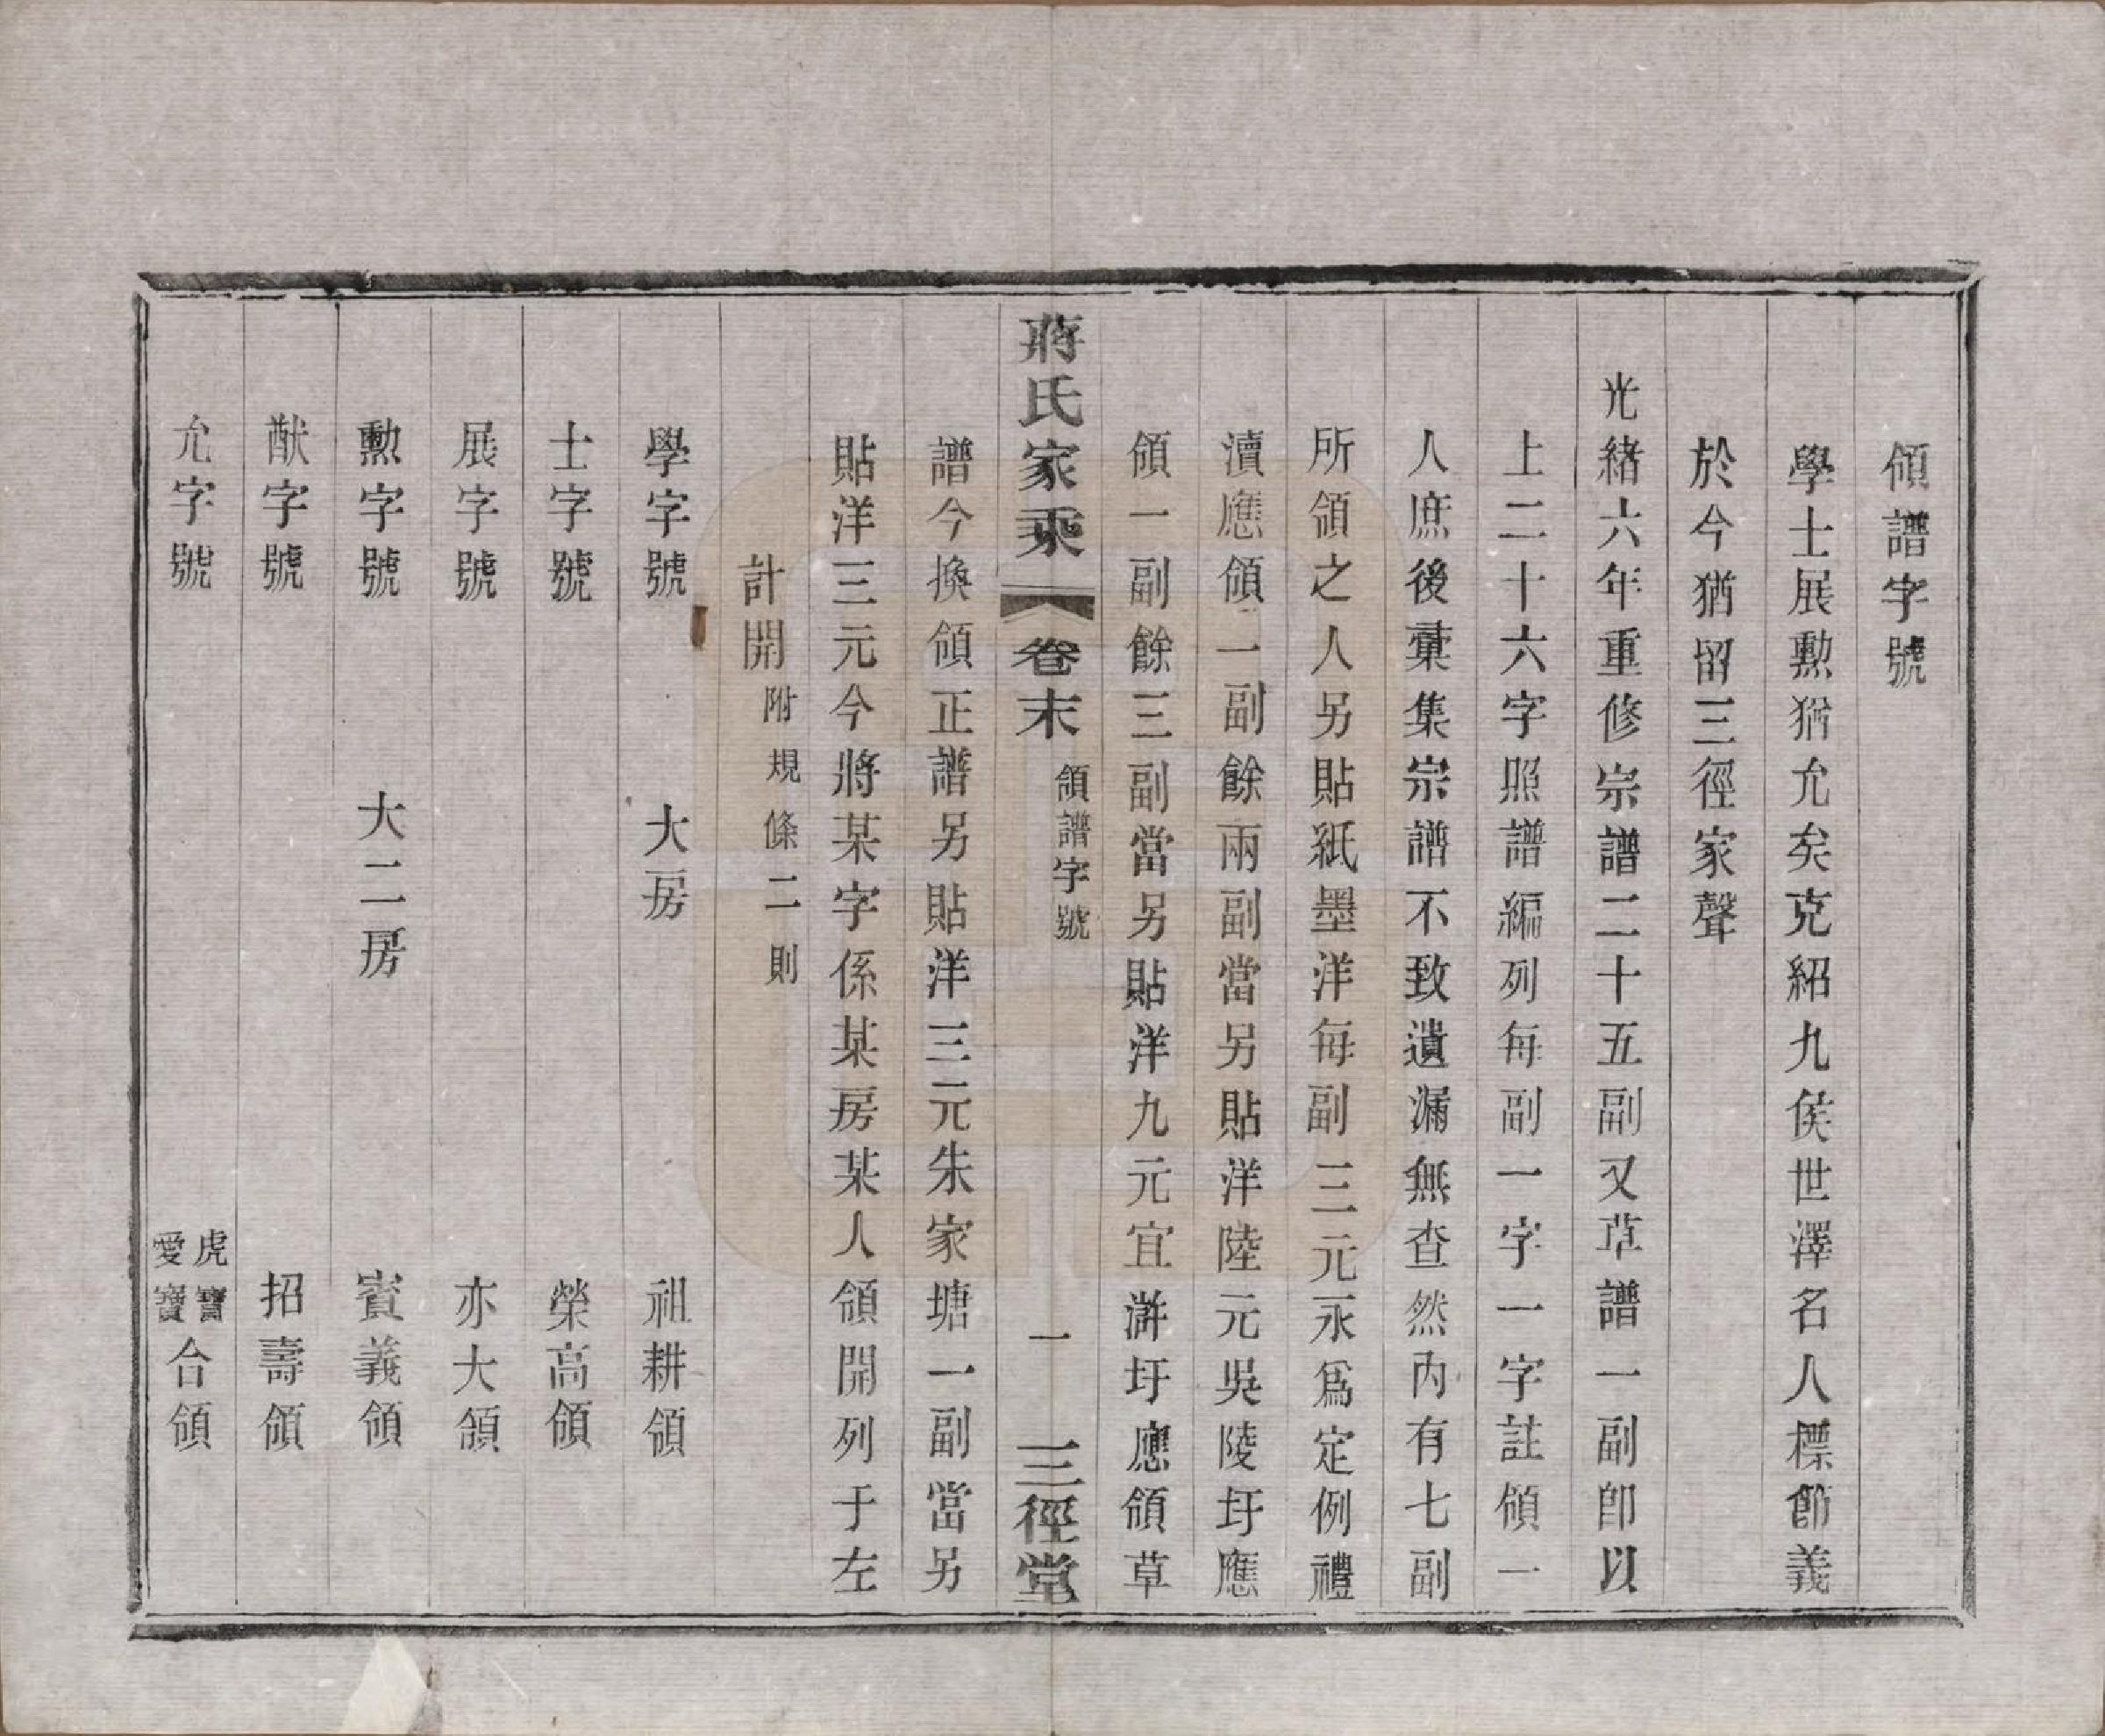 領譜字號
學士展勲猶允矣克紹九侯世澤名人標節義
於今猶留三徑家聲
光緒六年重修宗譜二十五副又草譜一副卽以
上二十六字照譜編列每副一字一字註領一
人庶後彙集宗譜不致遺漏無查然內有七副
所領之人另貼紙墨洋每副三元永爲定例禮
瀆應領二副餘兩副當另貼洋陸元吳陵圩應
領一副餘三副當另貼洋九元宜滸圩應領草
蔣氏家乘 卷末 領譜字號 一 三徑堂
譜今換領正譜另貼洋三元朱家塘一副當另
貼洋三元今將某字係某房某人領開列于左
計開附規條二則
學字號 大房 祖耕領
士字號 榮高領
展字號 亦大領
勲字號 大二房 賓義領
猷字號 招壽領
允字號 虎寶愛寶合領